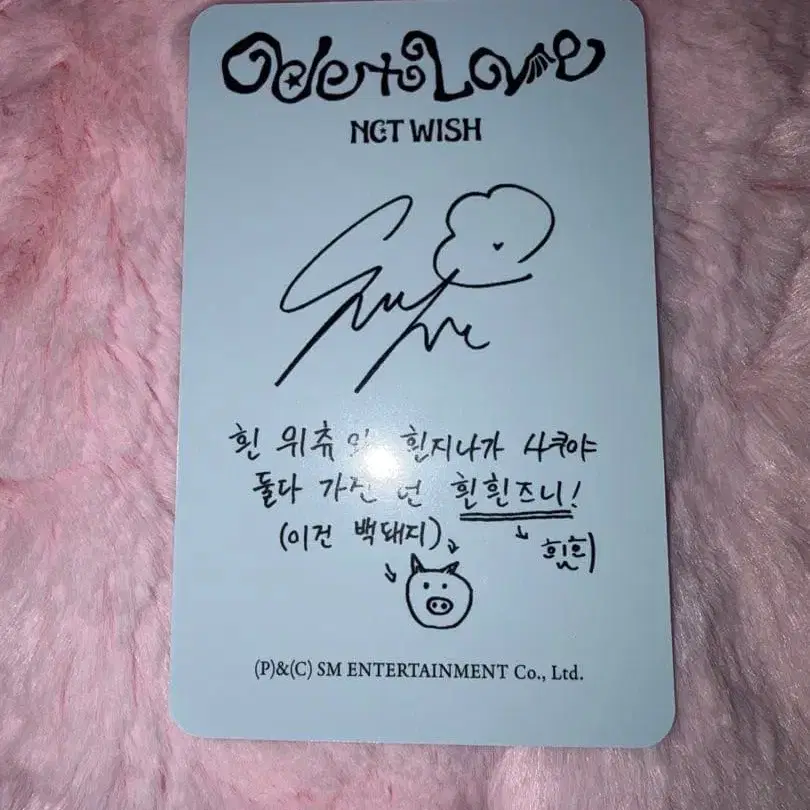 Ode to Love
NCT WISH
흰 위츄 흰지나가 사쿠야
둘다 가진 넌 흰흰즈니!
(이건 백돼지)
(P)&(C) SM ENTERTAINMENT Co., Ltd.